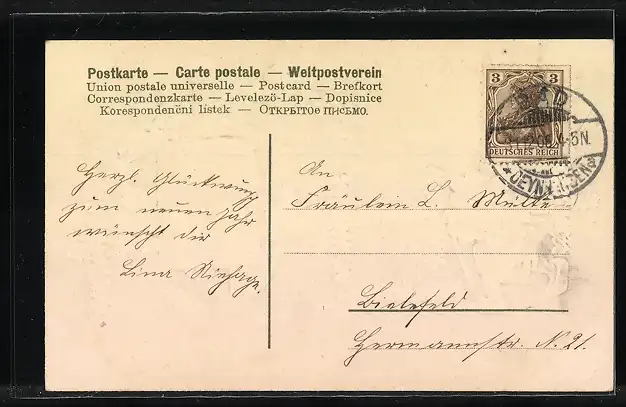 Postkarte — Carte postale — Weltpostverein
Union postale universelle — Postcard — Brefkort
Correspondenzkarte — Levelező-Lap — Dopisnice
Korespondenční lístek — ОТКРЫТОЕ ПИСЬМО.
3 3
DEUTSCHES REICH
BAD
4-5N.
* OEYNHAUSEN *
Herzl. Glückwunsch
zum neuen Jahr
wünscht dir
Lina
An
Fräulein L.
Bielefeld
Hermannstr. N. 21.